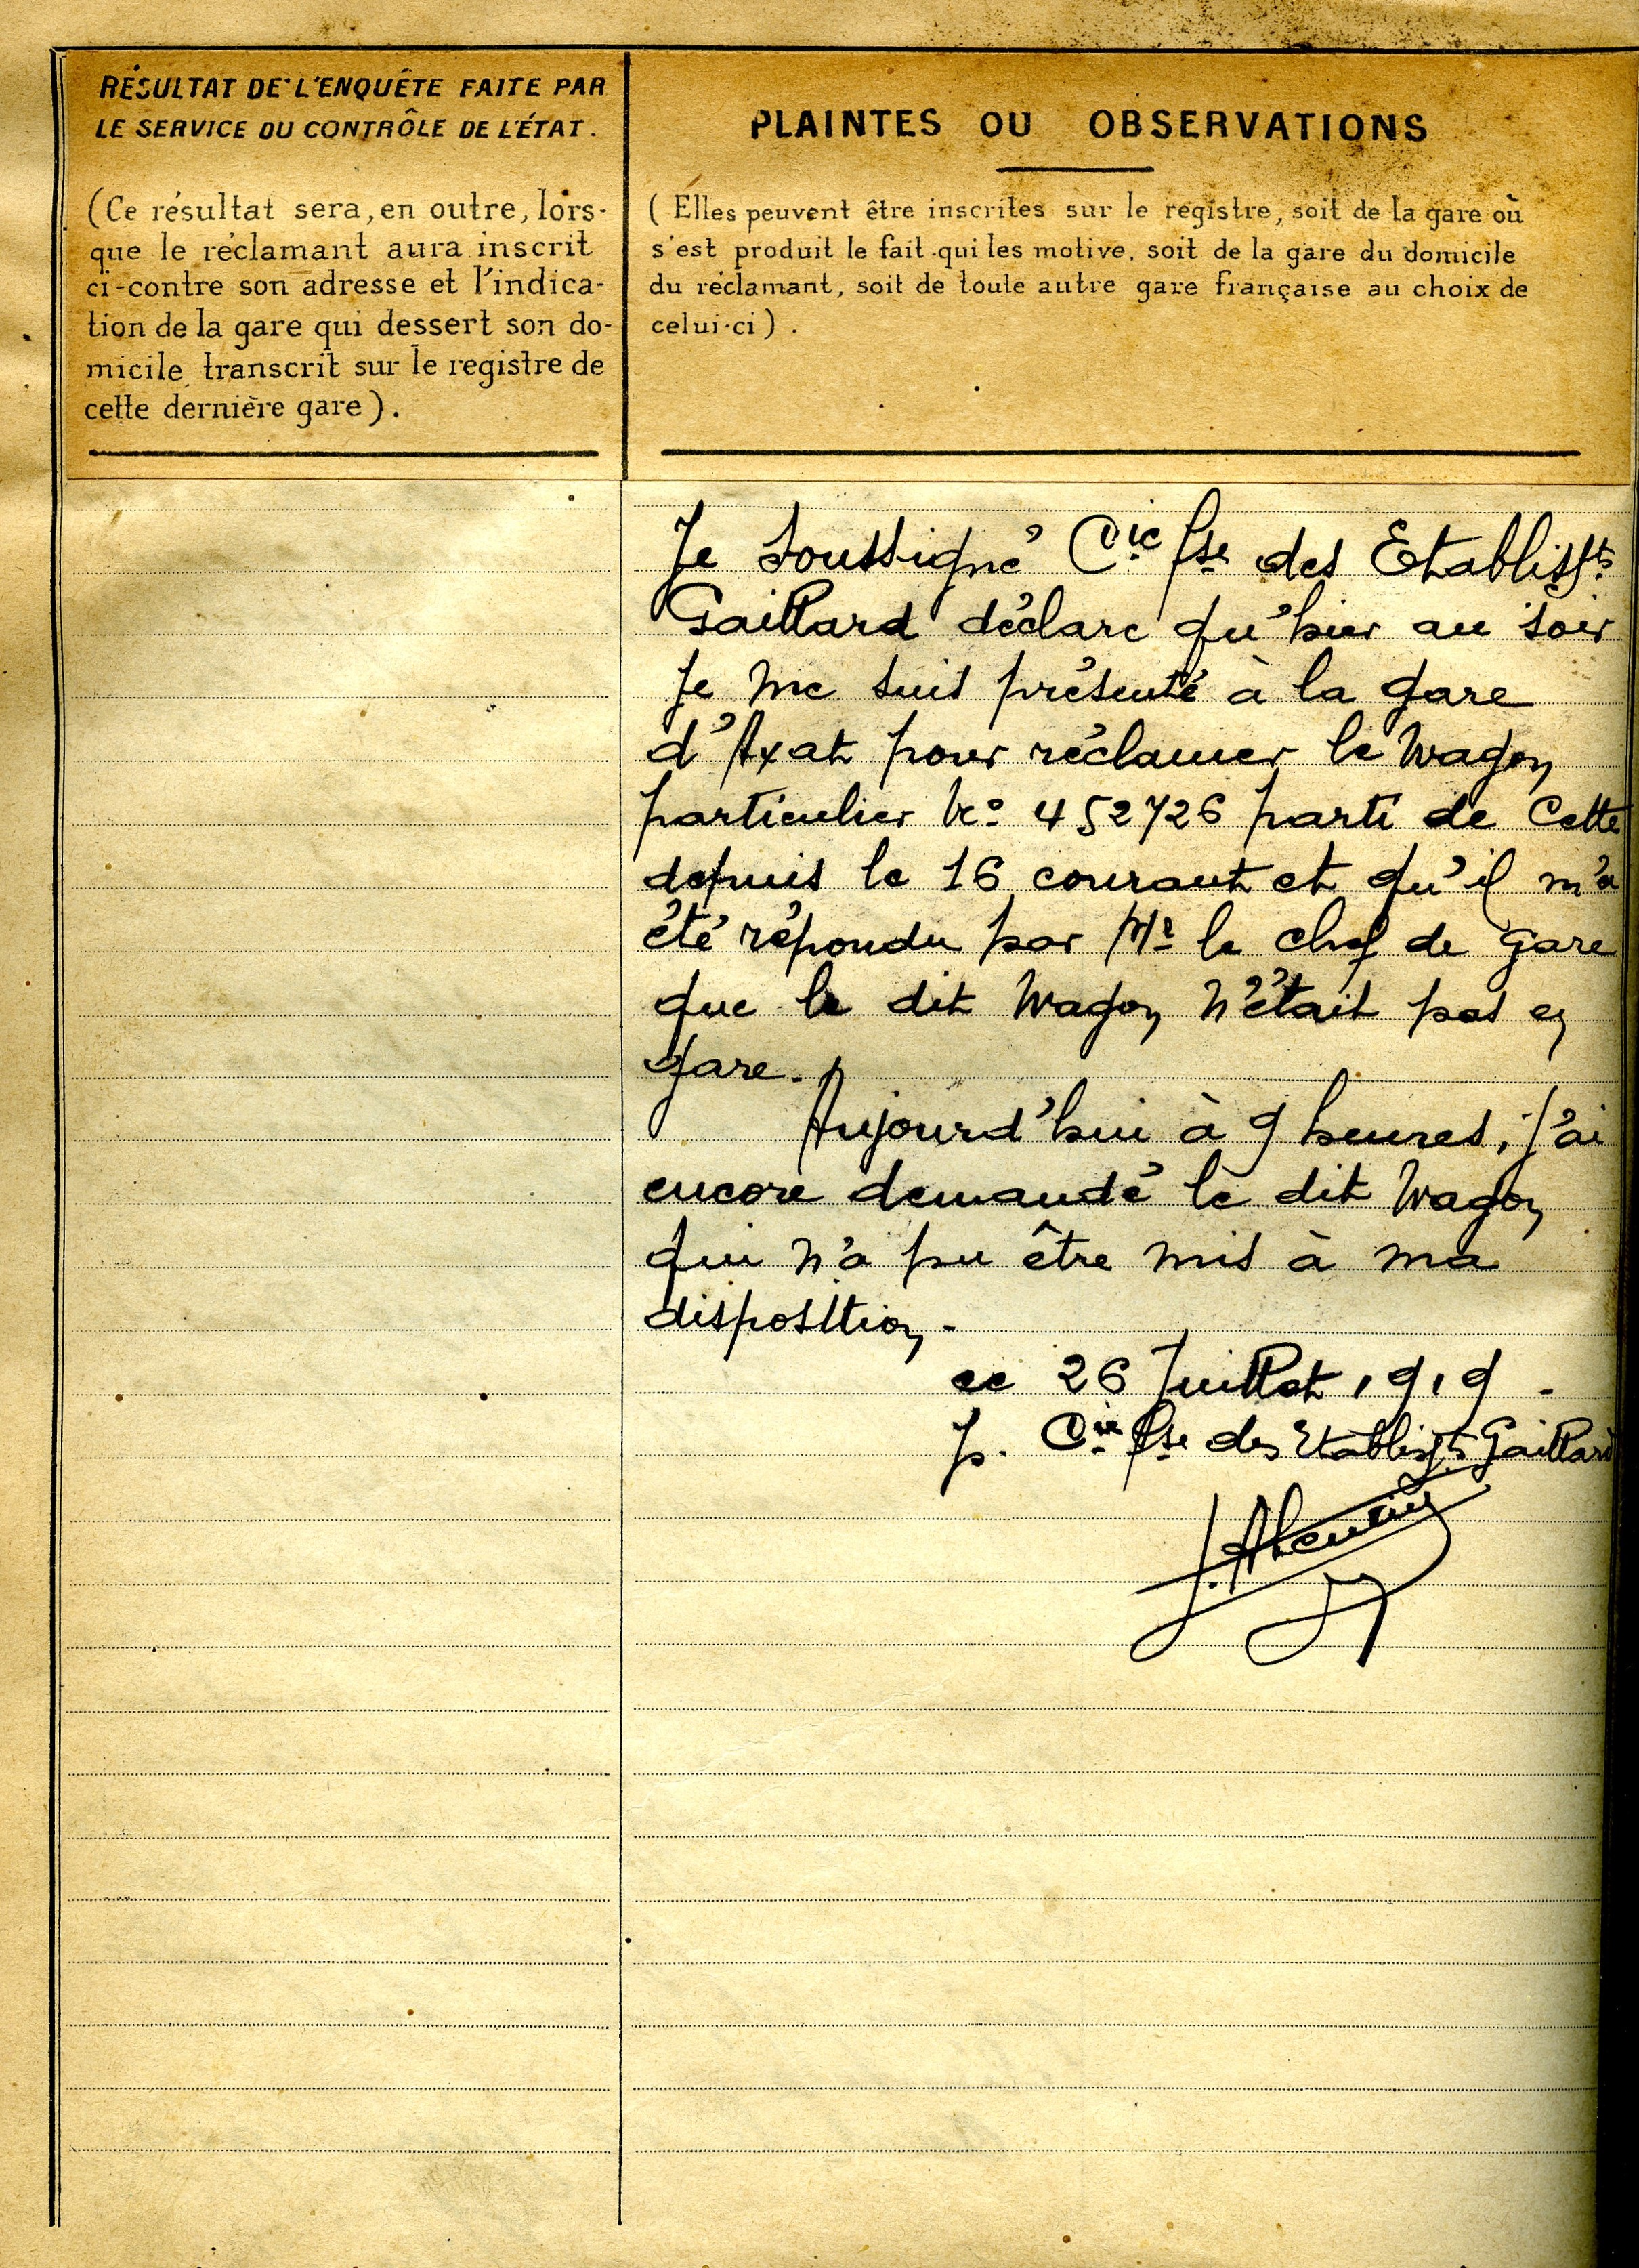 RÉSULTAT DE L'ENQUÊTE FAITE PAR
LE SERVICE DU CONTRÔLE DE L'ÉTAT.
(Ce résultat sera, en outre, lors-
que le réclamant aura inscrit
ci-contre son adresse et l'indica-
tion de la gare qui dessert son do-
micile transcrit sur le registre de
cette dernière gare).
PLAINTES OU OBSERVATIONS
(Elles peuvent être inscrites sur le registre, soit de la gare où
s'est produit le fait qui les motive, soit de la gare du domicile
du réclamant, soit de toute autre gare française au choix de
celui-ci).
Je Soussigné Cie fse des Etablissts
Gaillard déclare qu'hier au soir
je me suis présenté à la gare
d'Axat pour réclamer le wagon
particulier No 452726 parti de Cette
depuis le 16 courant et qu'il m'a
été répondu par Mr le chef de gare
que le dit wagon n'était pas en
gare.
Aujourd'hui à 9 heures, j'ai
encore demandé le dit wagon
qui n'a pu être mis à ma
disposition.
ce 26 Juillet 1919.
p. Cie fse des Etablissts Gaillard